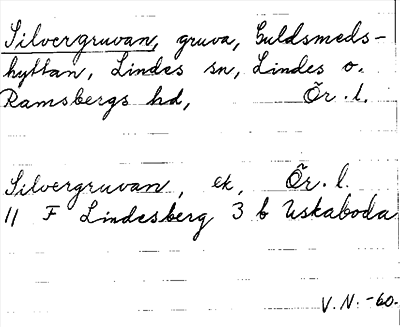 Silvergruvan, gruva, Guldsmeds-
hyttan, Lindes sn, Lindes o.
Ramsbergs hd, Ör. l.
Silvergruvan, ek, Ör. l.
11 F Lindesberg 3 b Uskaboda
V. N. -60.